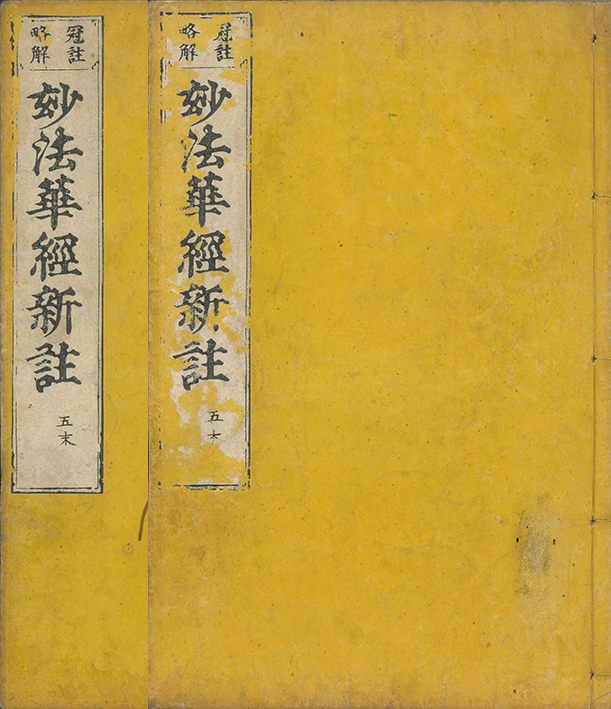 冠註
略解
妙法華經新註
五
冠註
略解
妙法華經新註
五末